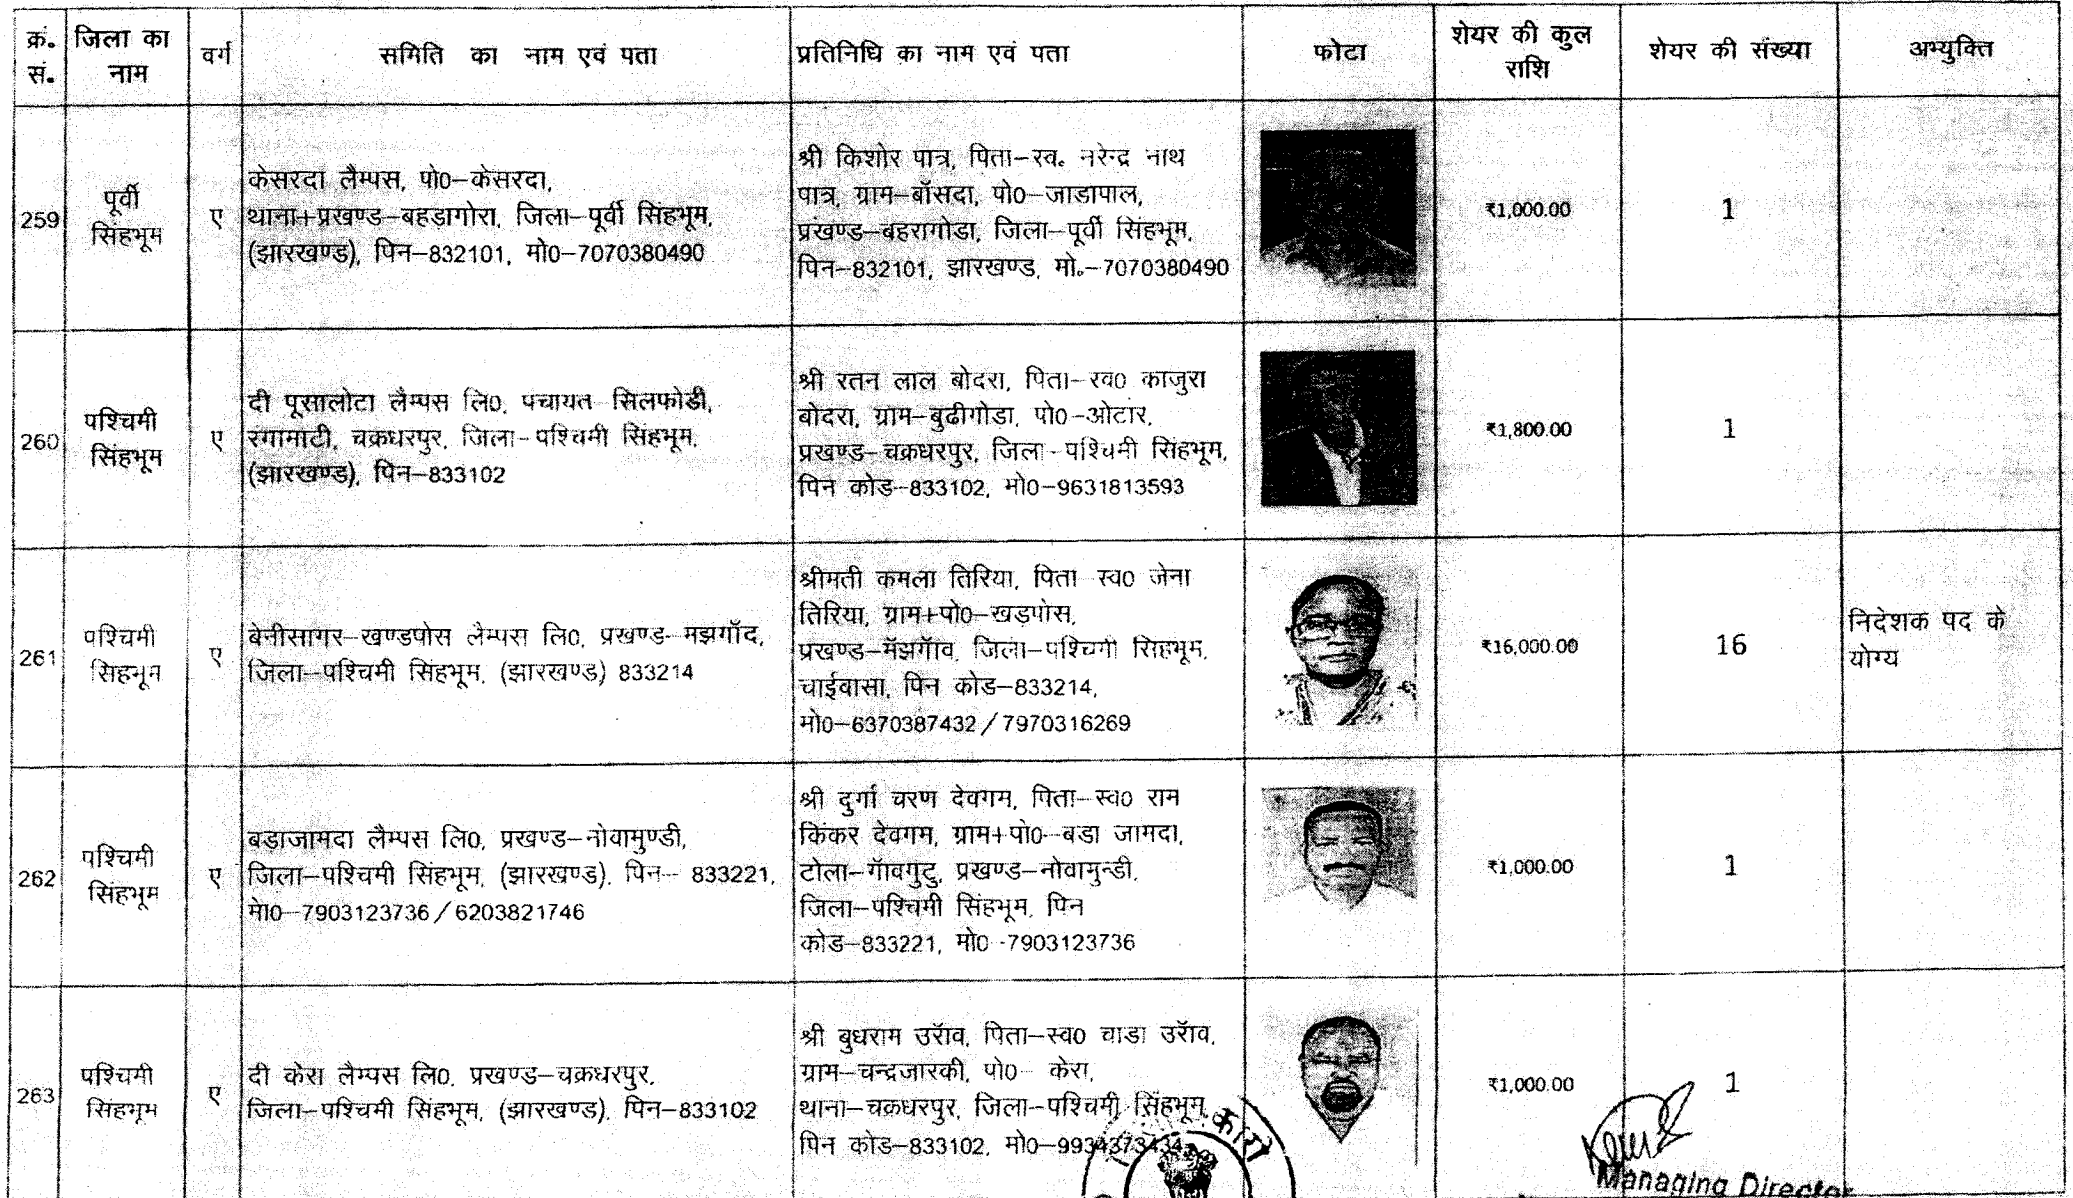 क्रं. सं. जिला का नाम वर्ग समिति का नाम एवं पता प्रतिनिधि का नाम एवं पता फोटा शेयर की कुल राशि शेयर की संख्या अभ्युक्ति
259 पूर्वी सिंहभूम ए
केसरदा लैम्पस, पो0–केसरदा,
थाना+प्रखण्ड–बहडागोरा, जिला–पूर्वी सिंहभूम,
(झारखण्ड), पिन–832101, मो0–7070380490
श्री किशोर पात्र, पिता–स्व. नरेन्द्र नाथ
पात्र, ग्राम–बॉसदा, पो0–जाडापाल,
प्रंखण्ड–बहरागोडा, जिला–पूर्वी सिंहभूम,
पिन–832101, झारखण्ड, मो.–7070380490
₹1,000.00 1
260 पश्चिमी सिंहभूम ए
दी पूसालोटा लैम्पस लि0, पचायत सिलफोडी,
रंगामाटी, चक्रधरपुर, जिला–पश्चिमी सिंहभूम,
(झारखण्ड), पिन–833102
श्री रतन लाल बोदरा, पिता–स्व0 काजुरा
बोदरा, ग्राम–बुढीगोडा, पो0–ओटार,
प्रखण्ड–चक्रधरपुर, जिला–पश्चिमी सिंहभूम,
पिन कोड–833102, मो0–9631813593
₹1,800.00 1
261 पश्चिमी सिंहभूम ए
बेनीसागर–खण्डपोस लैम्पस लि0, प्रखण्ड–मझगॉद,
जिला–पश्चिमी सिंहभूम, (झारखण्ड) 833214
श्रीमती कमला तिरिया, पिता स्व0 जेना
तिरिया, ग्राम+पो0–खड़पोस,
प्रखण्ड–मॅझगॉव, जिला–पश्चिमी सिंहभूम,
चाईवासा, पिन कोड–833214,
मो0–6370387432/7970316269
₹16,000.00 16 निदेशक पद के
योग्य
262 पश्चिमी सिंहभूम ए
बडाजामदा लैम्पस लि0, प्रखण्ड–नोवामुण्डी,
जिला–पश्चिमी सिंहभूम, (झारखण्ड), पिन– 833221,
मेा0–7903123736/6203821746
श्री दुर्गा चरण देवगम, पिता–स्व0 राम
किंकर देवगम, ग्राम+पो0–बडा जामदा,
टोला–गॅावगुटु, प्रखण्ड–नोवामुन्डी,
जिला–पश्चिमी सिंहभूम, पिन
कोड–833221, मो0–7903123736
₹1,000.00 1
263 पश्चिमी सिंहभूम ए
दी केरा लैम्पस लि0, प्रखण्ड–चक्रधरपुर,
जिला–पश्चिमी सिंहभूम, (झारखण्ड), पिन–833102
श्री बुधराम उरॅाव, पिता–स्व0 चाडा उरॅाव,
ग्राम–चन्द्रजारकी, पो0– केरा,
थाना–चक्रधरपुर, जिला–पश्चिमी सिंहभूम,
पिन कोड–833102, मो0–9934373434
₹1,000.00 1
Managing Director